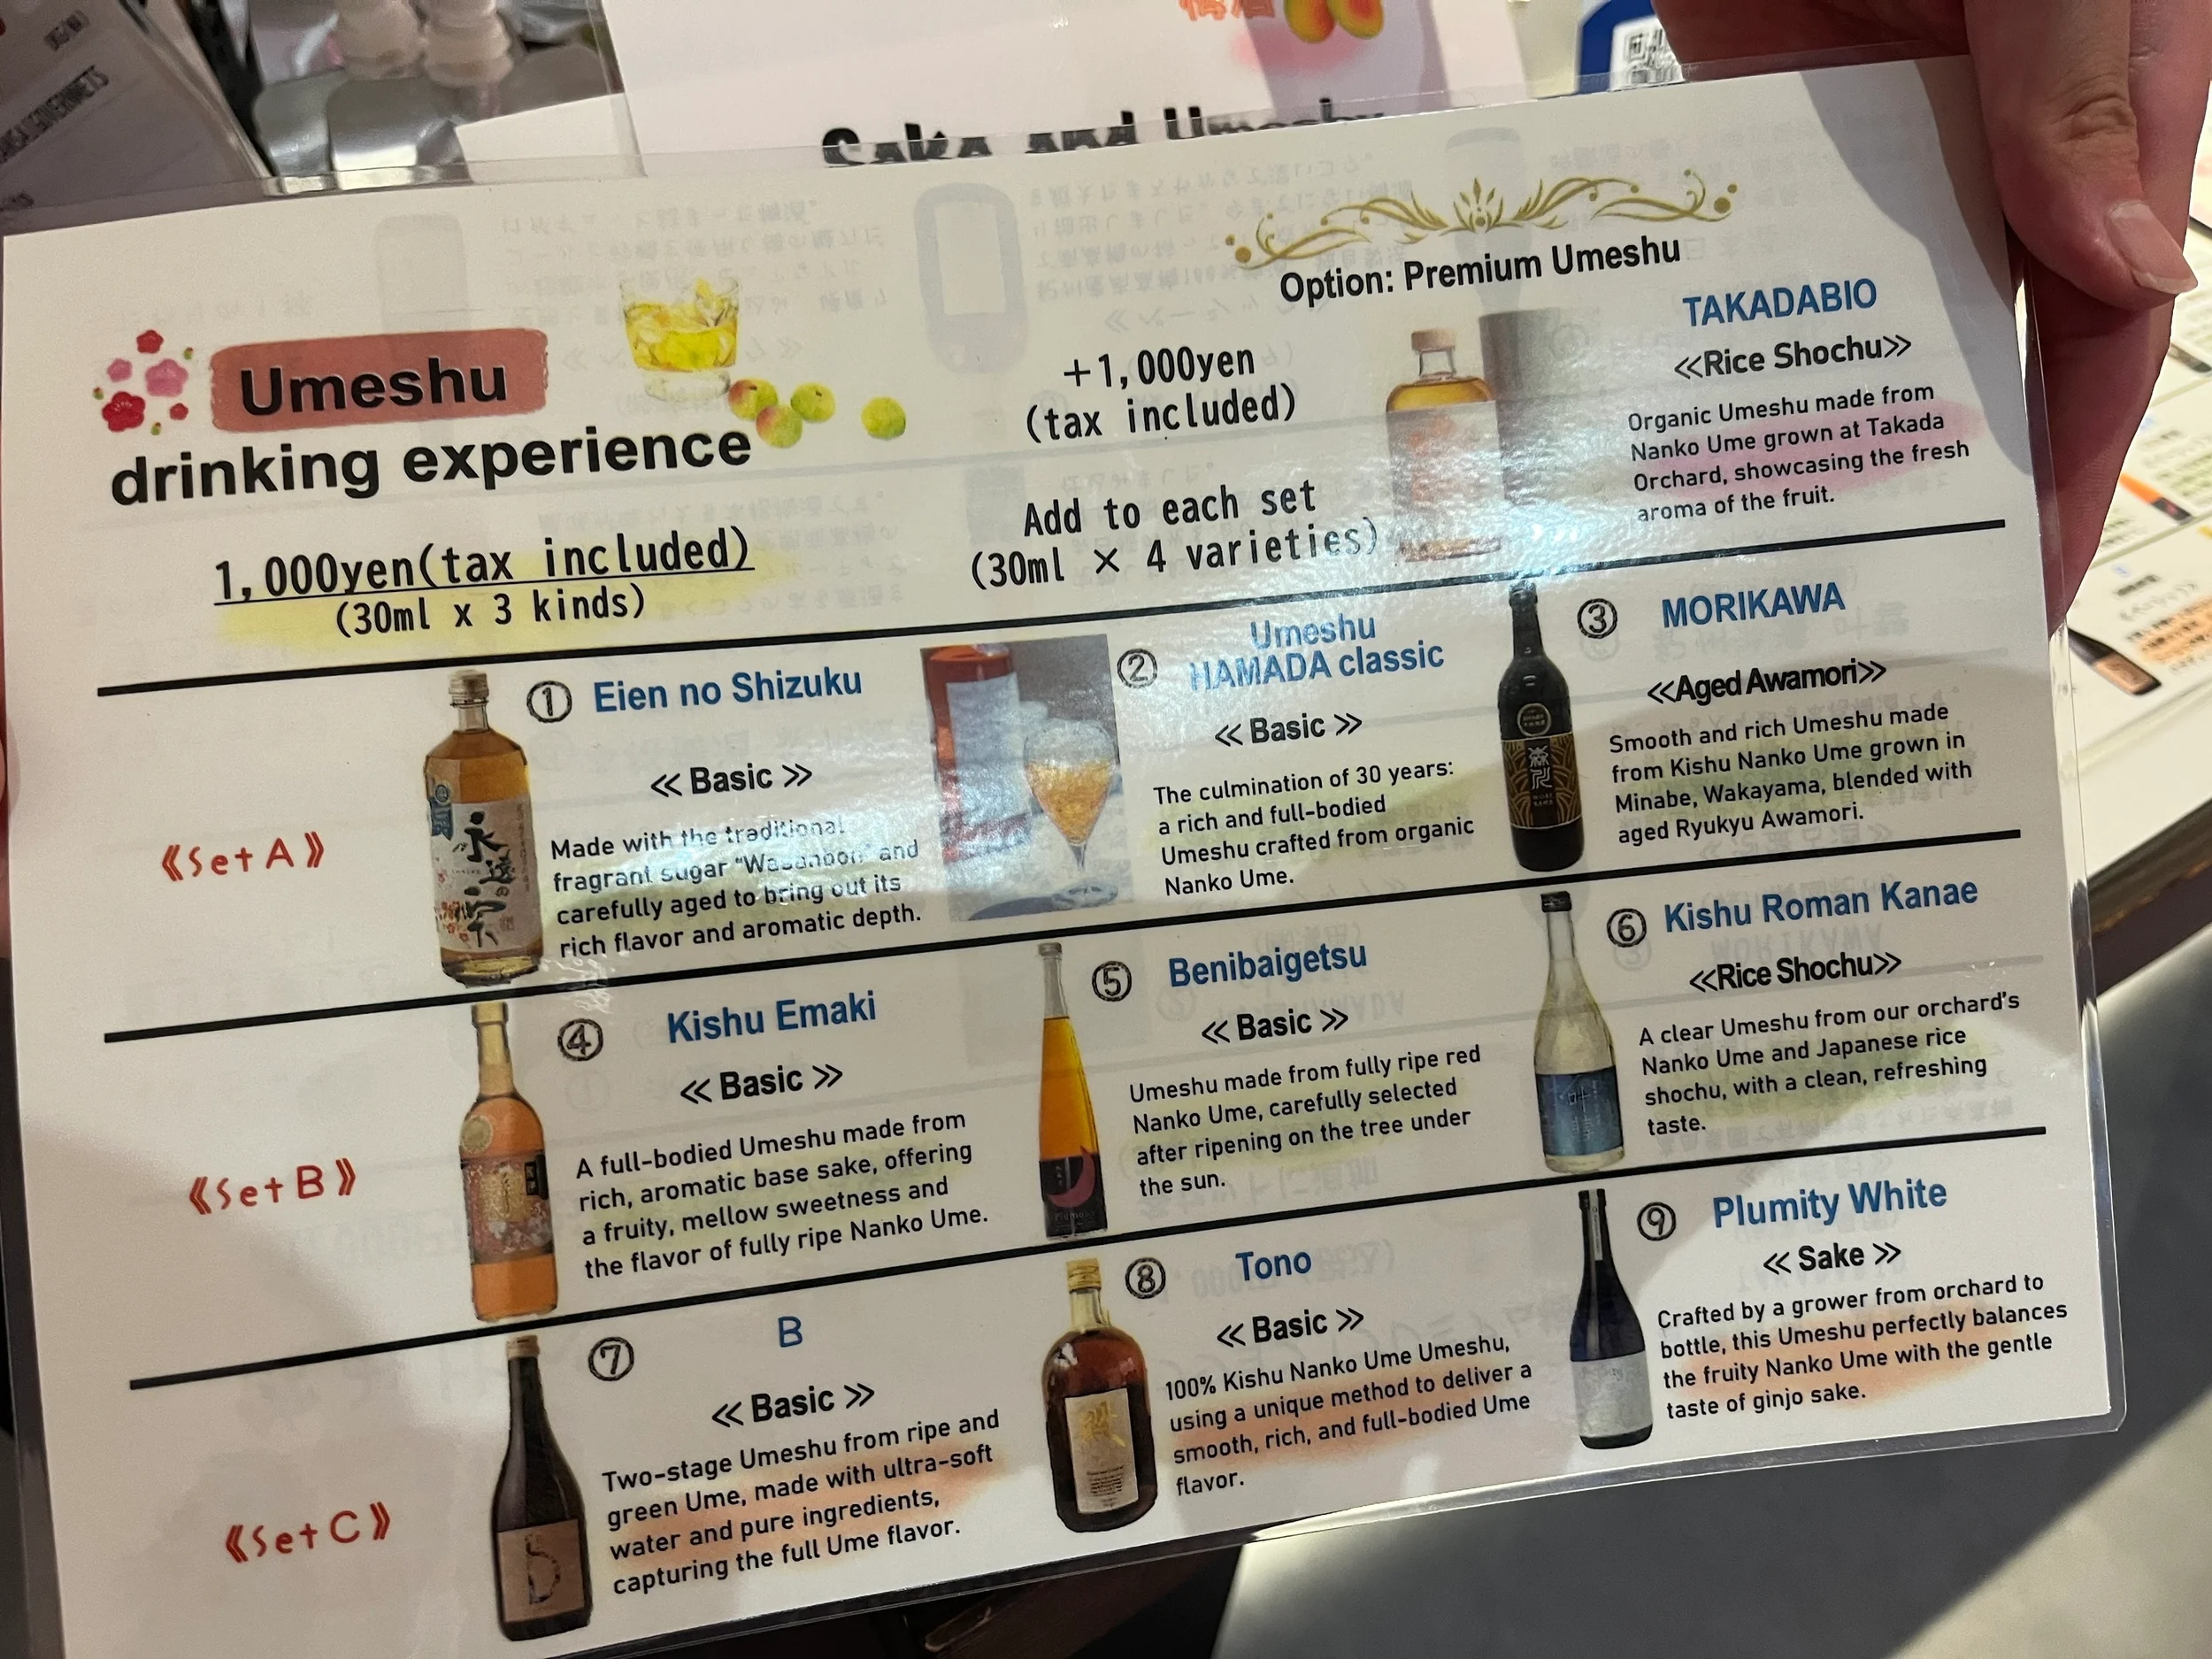 Sake and Umeshu
Umeshu
drinking experience
1,000yen(tax included)
(30ml x 3 kinds)
Option: Premium Umeshu
+1,000yen
(tax included)
Add to each set
(30ml × 4 varieties)
TAKADABIO
≪Rice Shochu≫
Organic Umeshu made from
Nanko Ume grown at Takada
Orchard, showcasing the fresh
aroma of the fruit.
《Set A》
① Eien no Shizuku
≪ Basic ≫
Made with the traditional
fragrant sugar "Wasanbon" and
carefully aged to bring out its
rich flavor and aromatic depth.
② Umeshu
HAMADA classic
≪ Basic ≫
The culmination of 30 years:
a rich and full-bodied
Umeshu crafted from organic
Nanko Ume.
③ MORIKAWA
≪Aged Awamori≫
Smooth and rich Umeshu made
from Kishu Nanko Ume grown in
Minabe, Wakayama, blended with
aged Ryukyu Awamori.
《Set B》
④ Kishu Emaki
≪ Basic ≫
A full-bodied Umeshu made from
rich, aromatic base sake, offering
a fruity, mellow sweetness and
the flavor of fully ripe Nanko Ume.
⑤ Benibaigetsu
≪ Basic ≫
Umeshu made from fully ripe red
Nanko Ume, carefully selected
after ripening on the tree under
the sun.
⑥ Kishu Roman Kanae
≪Rice Shochu≫
A clear Umeshu from our orchard's
Nanko Ume and Japanese rice
shochu, with a clean, refreshing
taste.
《Set C》
⑦ B
≪ Basic ≫
Two-stage Umeshu from ripe and
green Ume, made with ultra-soft
water and pure ingredients,
capturing the full Ume flavor.
⑧ Tono
≪ Basic ≫
100% Kishu Nanko Ume Umeshu,
using a unique method to deliver a
smooth, rich, and full-bodied Ume
flavor.
⑨ Plumity White
≪ Sake ≫
Crafted by a grower from orchard to
bottle, this Umeshu perfectly balances
the fruity Nanko Ume with the gentle
taste of ginjo sake.